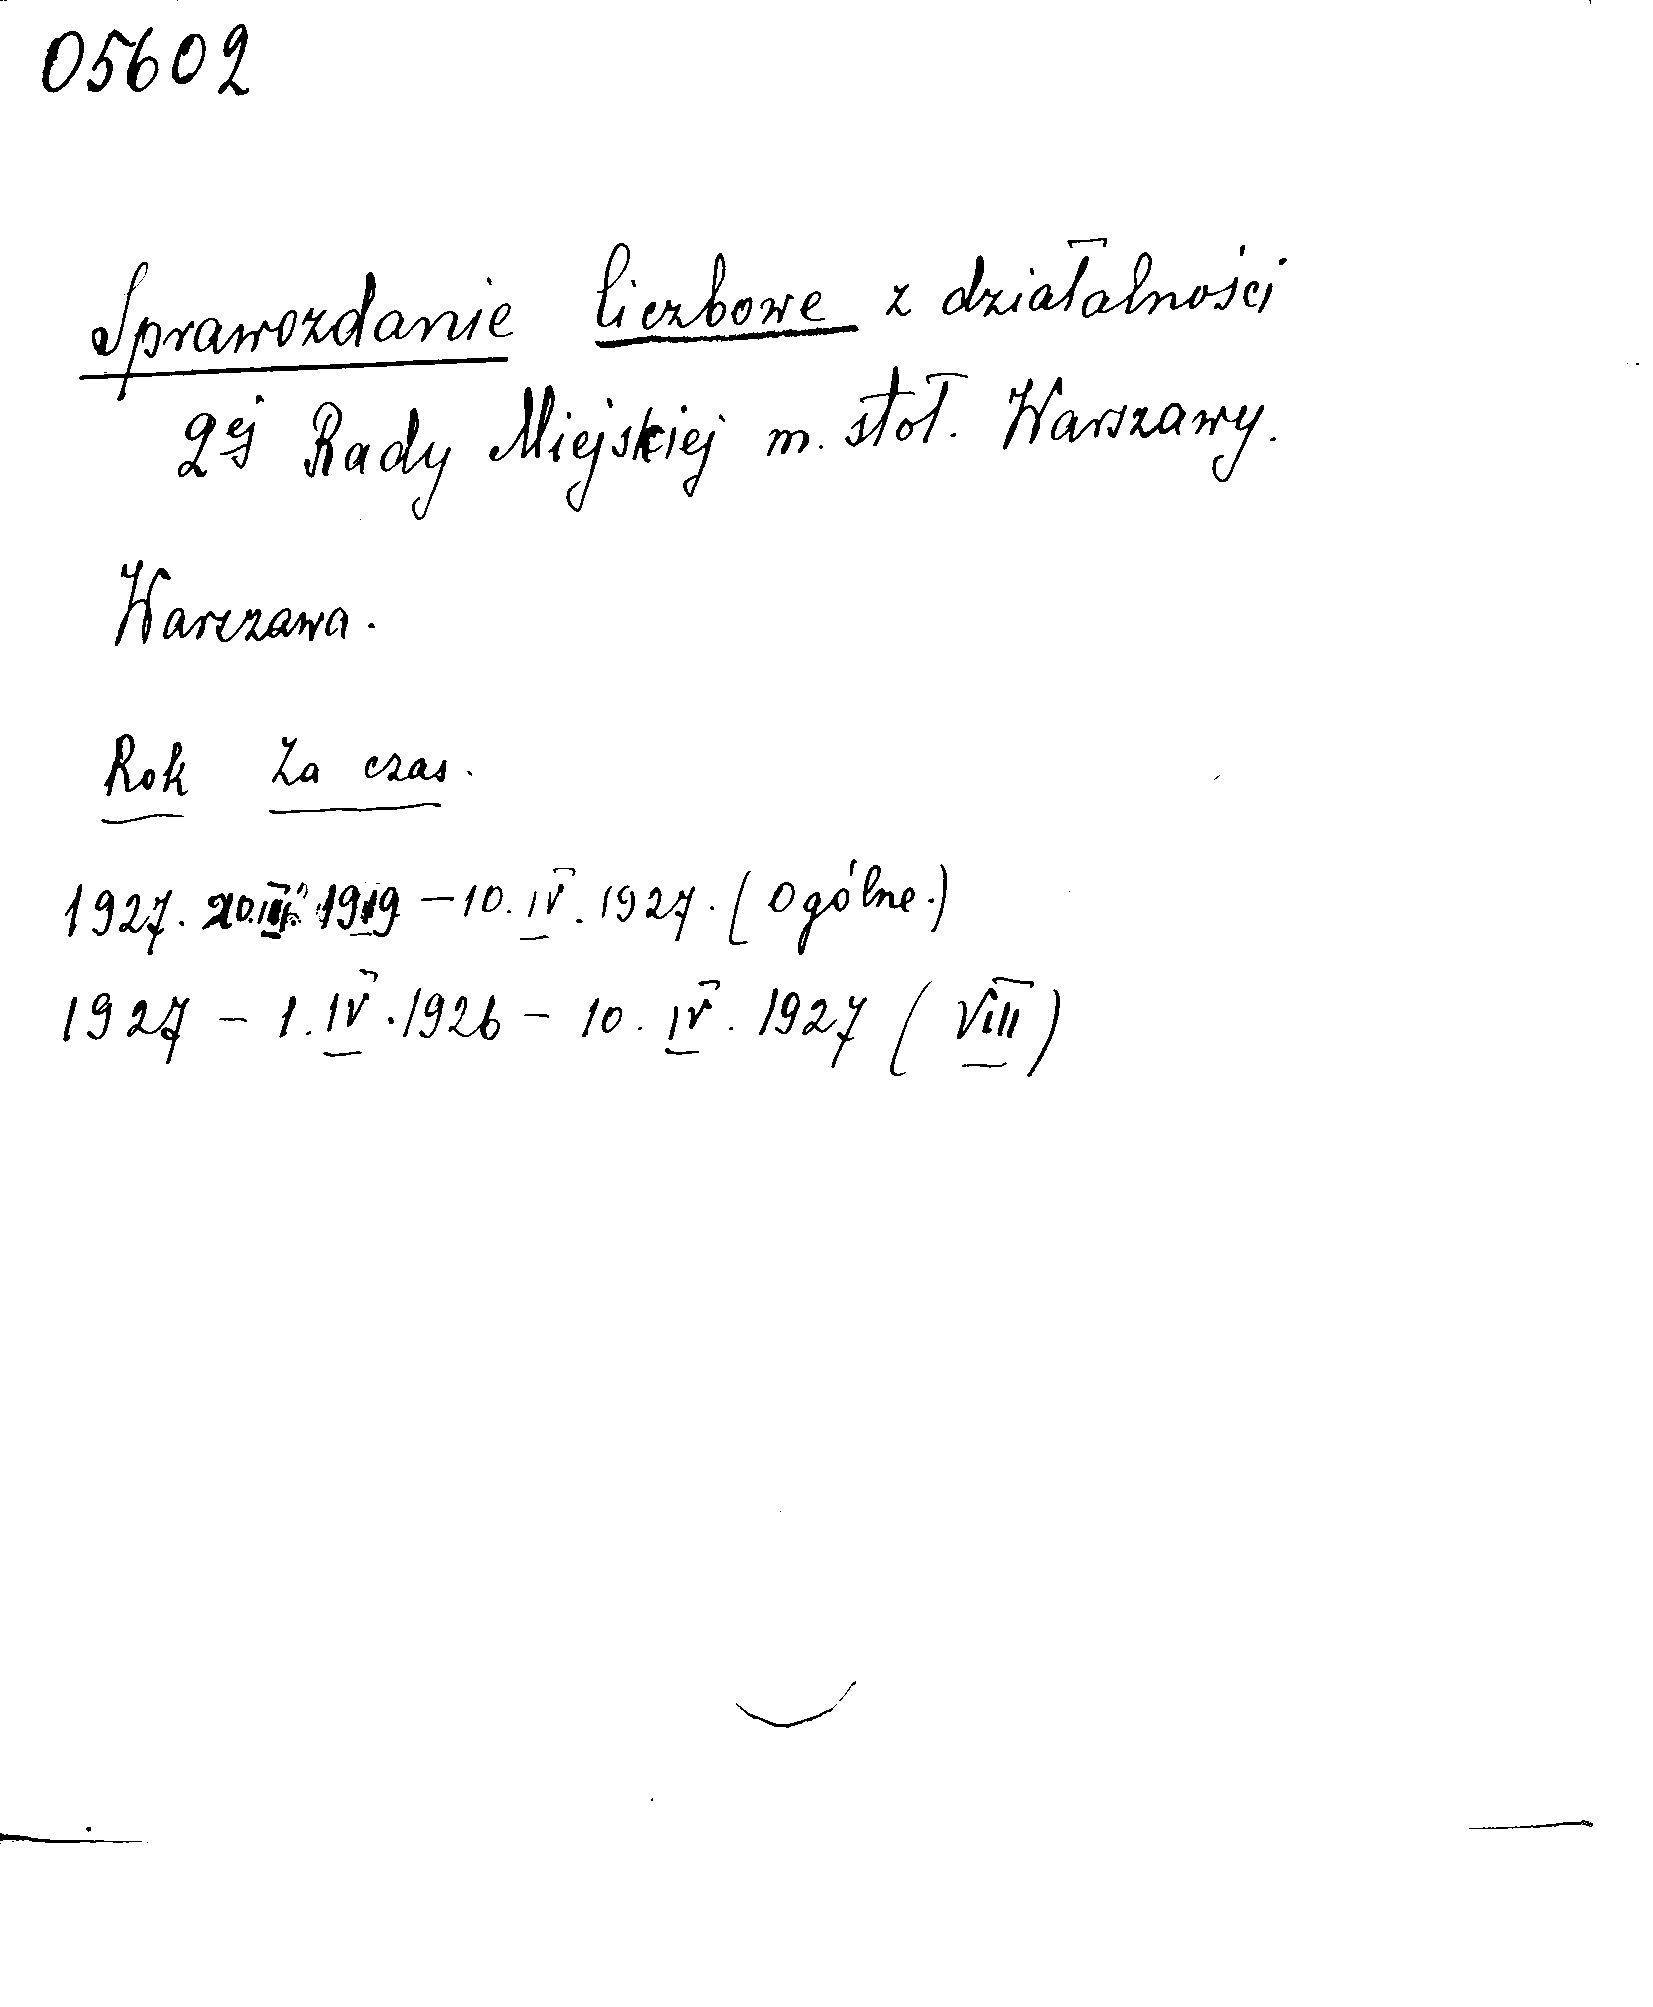 05602
Sprawozdanie liczbowe z działalności
2ej Rady Miejskiej m. stoł. Warszawy.
Warszawa.
Rok Za czas.
1927. 20.III. 1919 – 10. IV. 1927. (Ogólne.)
1927 – 1. IV. 1926 – 10. IV. 1927 (VIII)